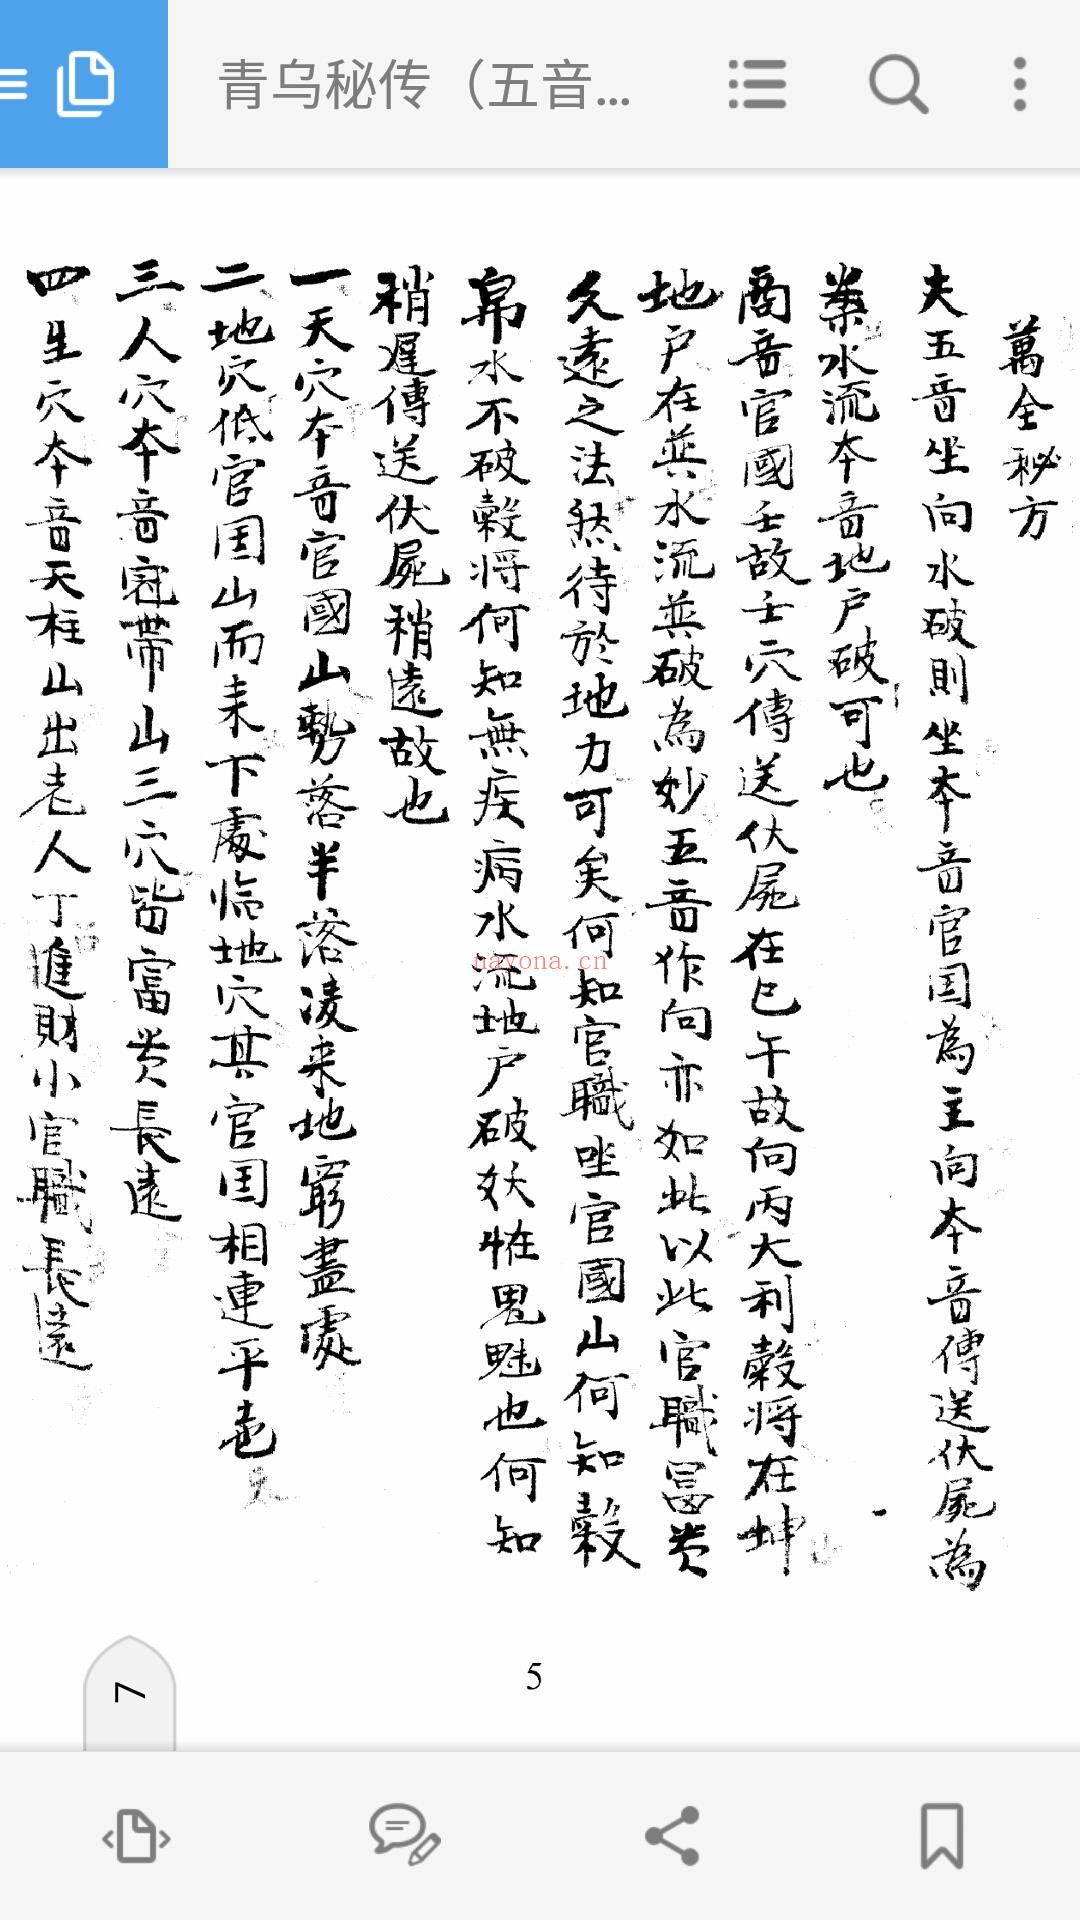 青乌秘传（五音...
萬全秘方
夫五音坐向水破則坐本音官国為主向本音傳送伏屍為
案水流本音地户破可也
商音官國壬故壬穴傳送伏屍在巳午故向丙大利穀将在坤
地户在巽水流巽破為妙五音作向亦如此以此官職冨贵
久遠之法然待於地力可矣何知官職坐官國山何知穀
帛水不破穀将何知無疾病水流地户破妖怪鬼魅也何知
稍遲傳送伏屍稍遠故也
一天穴本音官國山勢落半落凌来地窮盡處
二地穴低官国山而来下處临地穴其官国相連平也
三人穴本音冠帯山三穴皆富贵長遠
四生穴本音天柱山出老人丁進財小官職長遠
nayona.cn
5
7